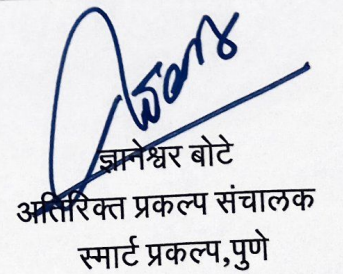 ज्ञानेश्वर बोटे
अतिरिक्त प्रकल्प संचालक
स्मार्ट प्रकल्प,पुणे